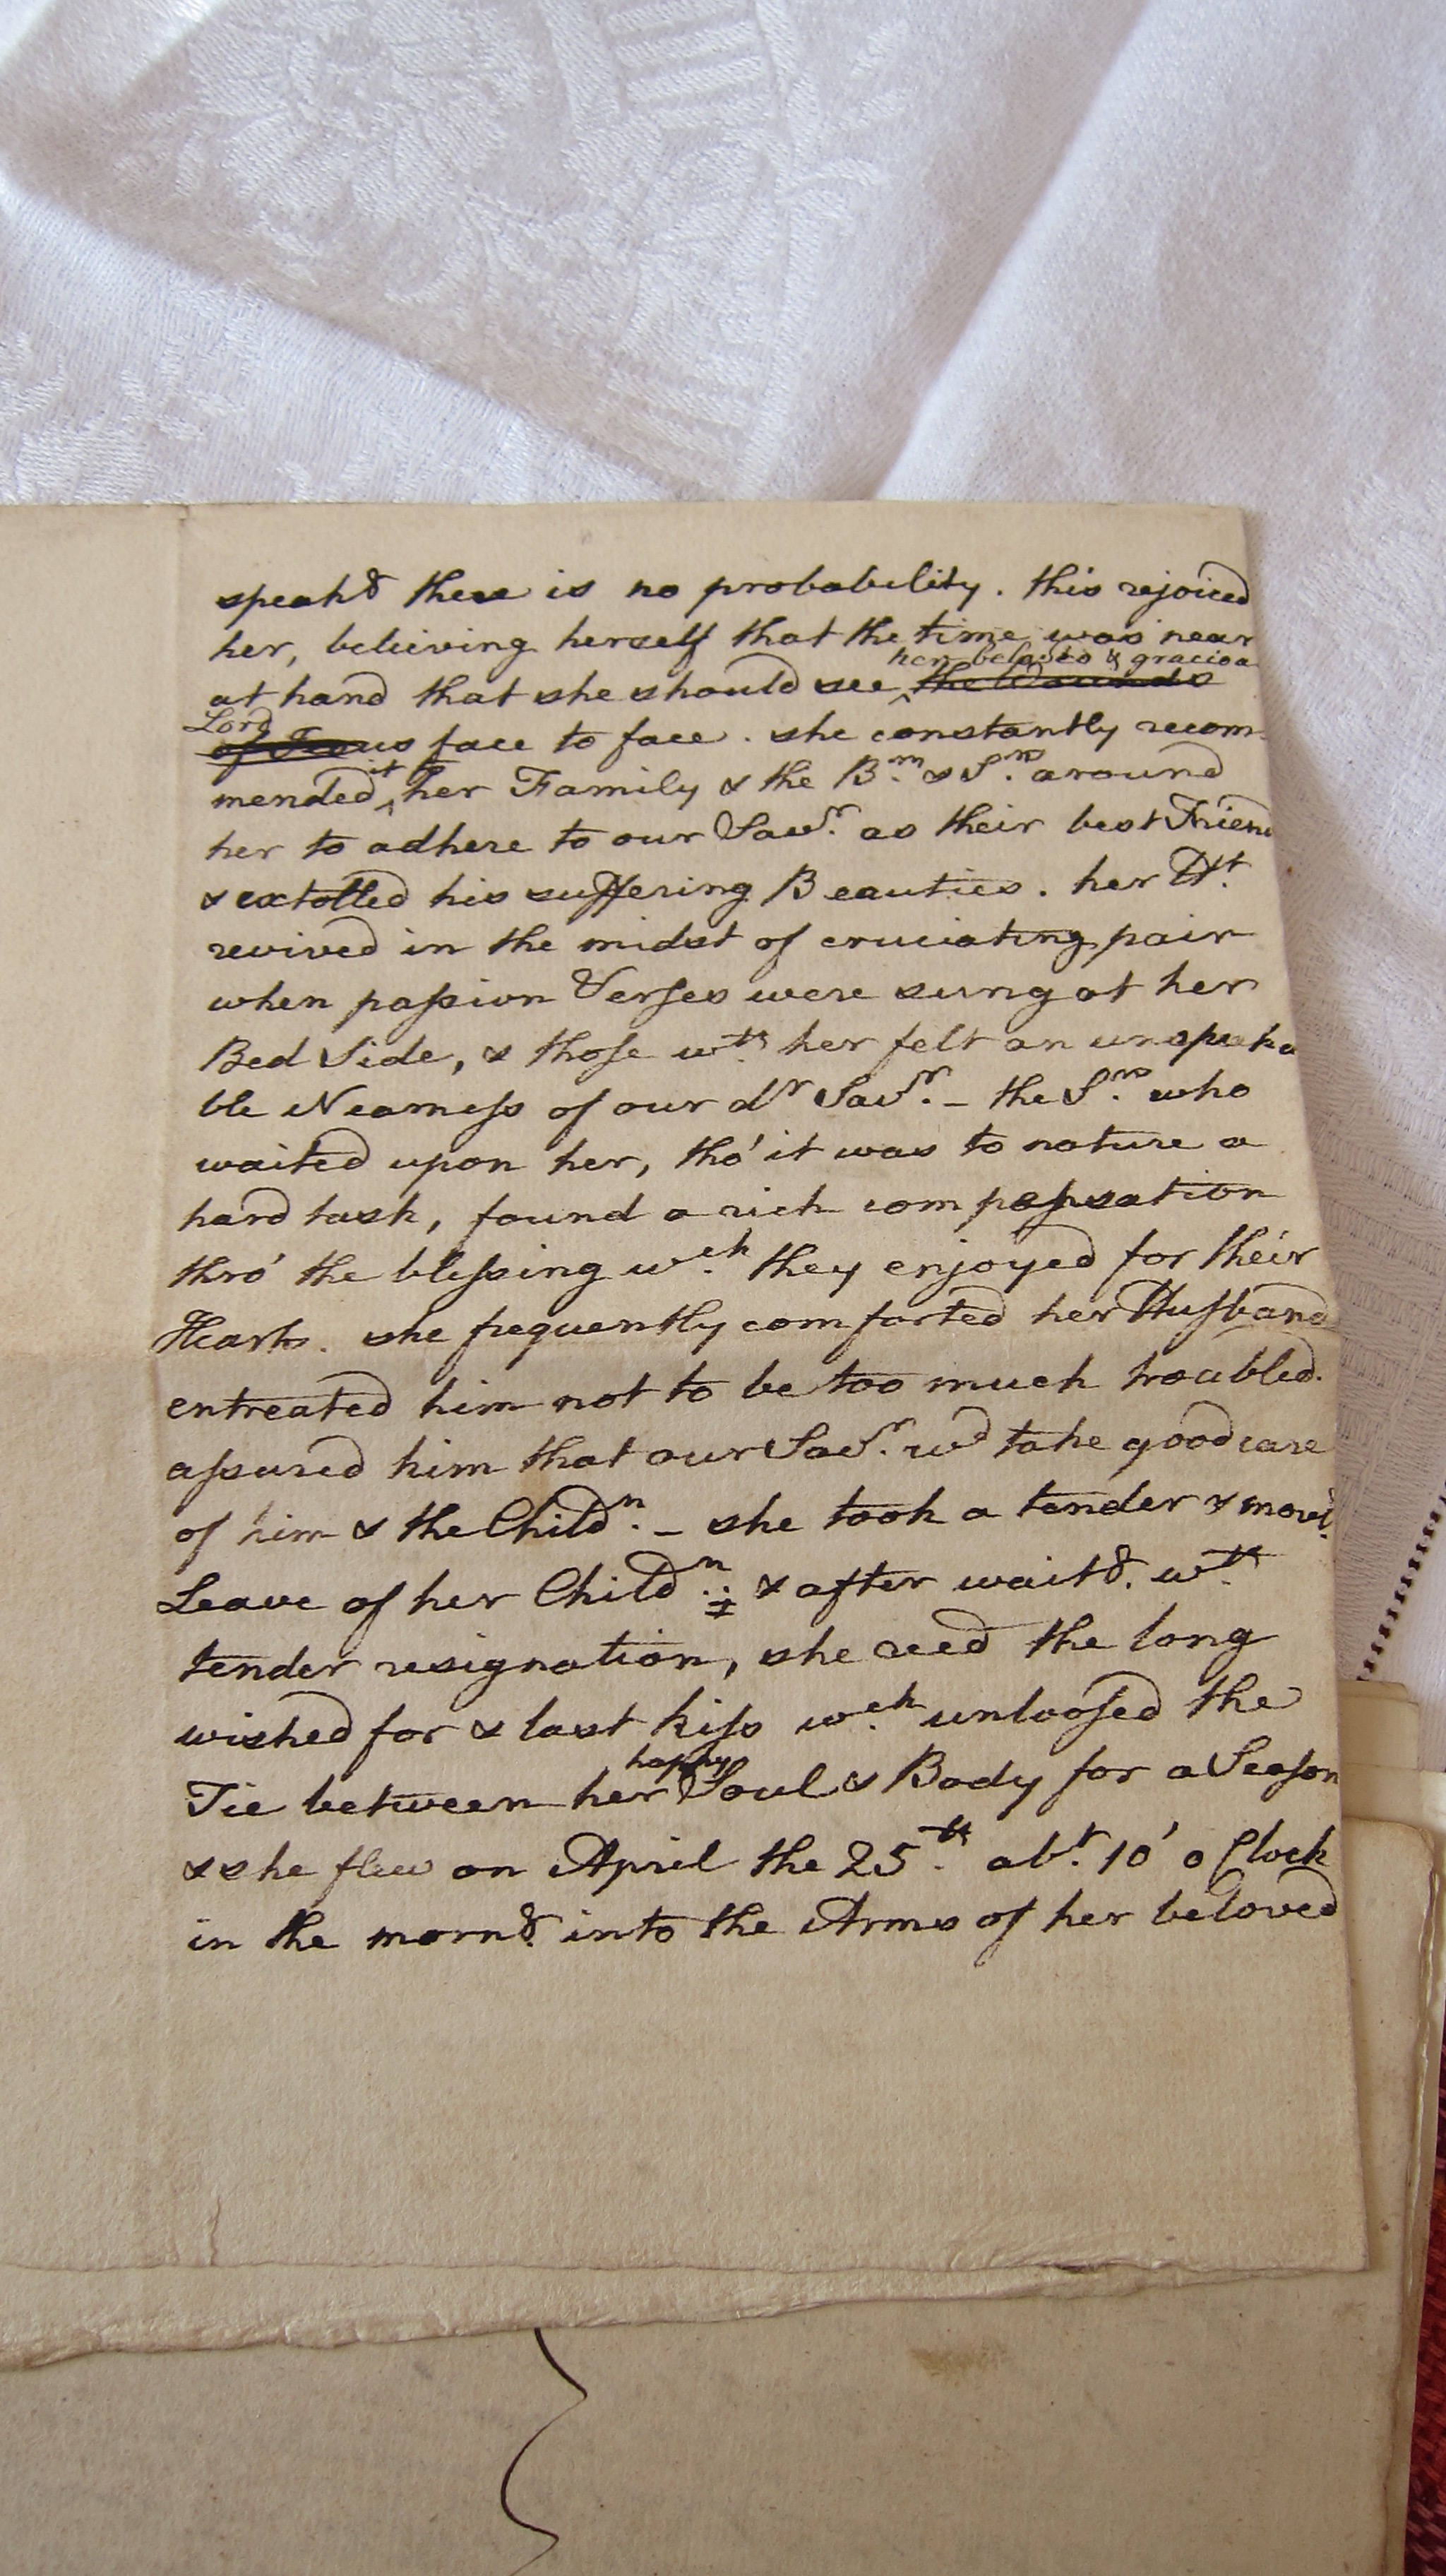 speakg there is no probability. this rejoiced
her, believing herself that the time was near
her beloved & gracious
at hand that she should see ^ the Wounds
Lord
of Jesus face to face. she constantly recom-
it
mended ^ her Family & the Brn & Srs around
her to adhere to our Savr. as their best Friend
& extolled his suffering Beauties. her Ht.
revived in the midst of cruciating pain
when paſsion Verſes were sung at her
Bed Side, & thoſe wth. her felt an unspeaka
ble Nearneſs of our dr Savr. – the Srs. who
waited upon her, tho' it was to nature a
hard task, found a rich compensation
thro' the bleſsing wch. they enjoyed for their
Hearts. she frequently comforted her Huſband
entreated him not to be too much troubled.
aſsured him that our Savr. wd take good care
of him & the Childn. – she took a tender & movg.
Leave of her Childn. ‡ & after waitg. wth.
tender resignation, she recd the long
wished for & last kiſs wch. unlooſed the
happy
Tie between her Soul & Body for a Seaſon
& she flew on April the 25th. abt. 10' o Clock
in the morng. into the Arms of her beloved